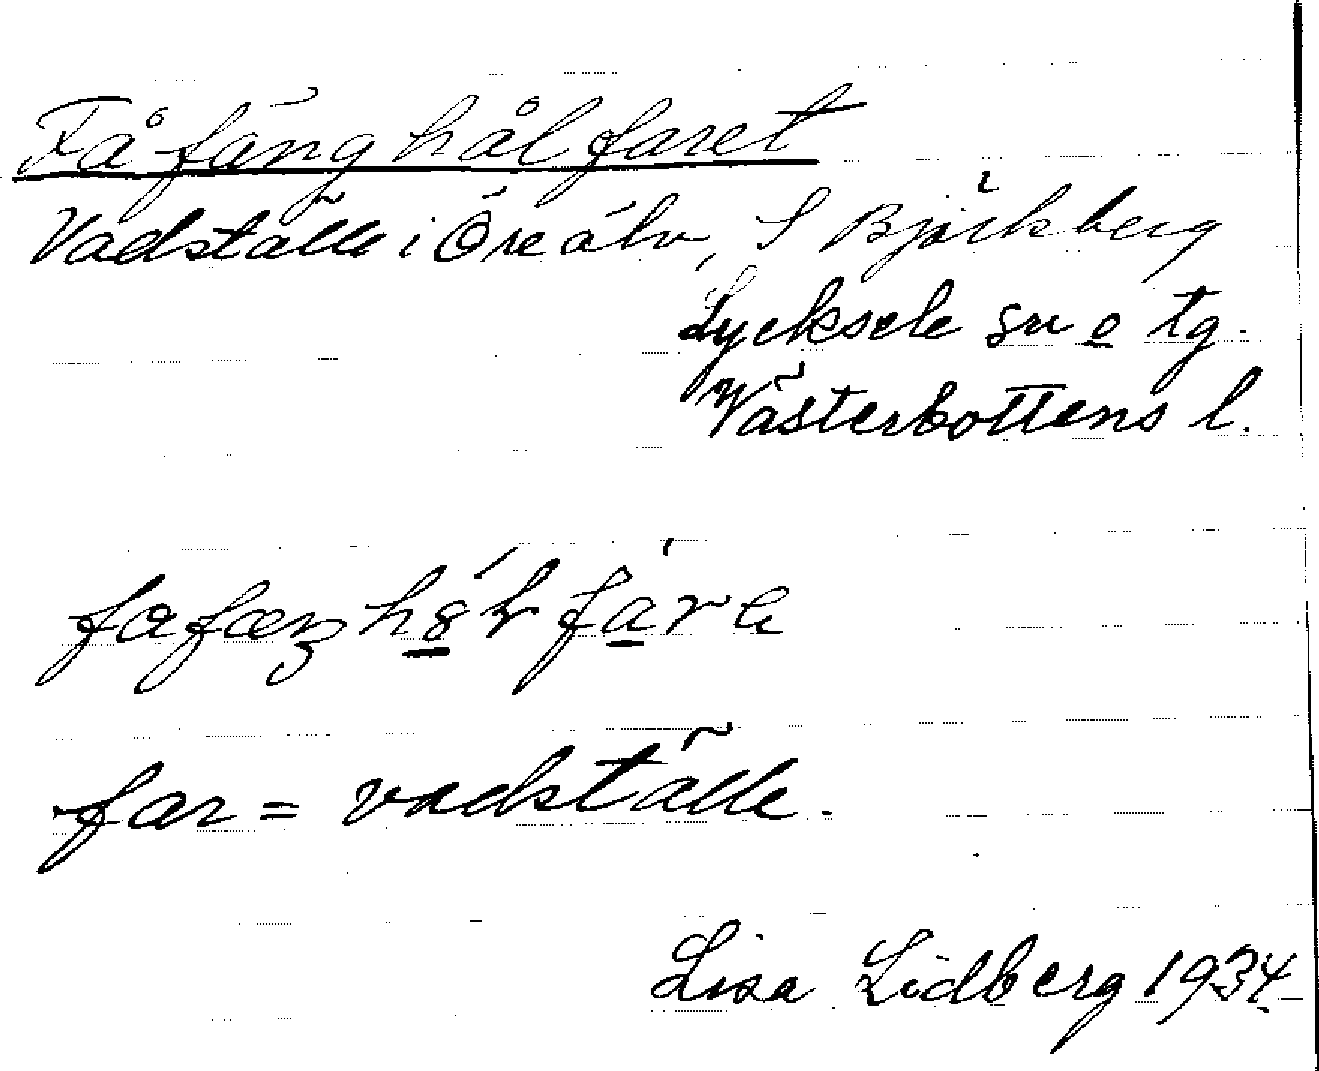 Fåfänghålfaret
Vadställe i Öre älv, S Björkberg
Lycksele sn o tg.
Västerbottens l.
far = vadställe.
Lisa Lidberg 1934